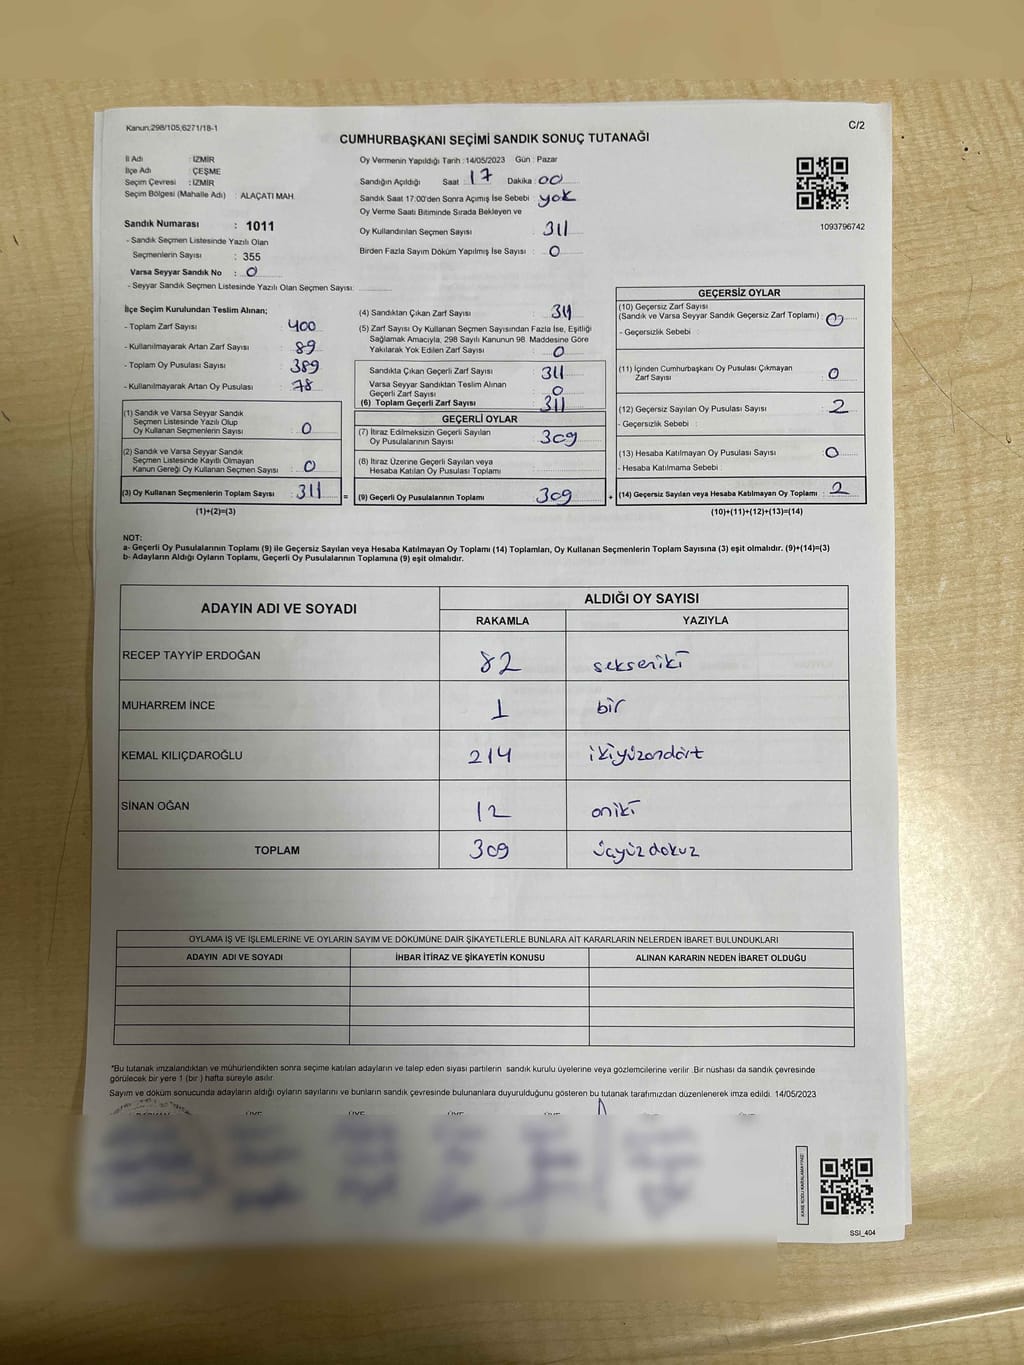 Kanun;298/105;6271/18-1
C/2
CUMHURBAŞKANI SEÇİMİ SANDIK SONUÇ TUTANAĞI
İl Adı : İZMİR
İlçe Adı : ÇEŞME
Seçim Çevresi : İZMİR
Seçim Bölgesi (Mahalle Adı) : ALAÇATI MAH.
Sandık Numarası : 1011
- Sandık Seçmen Listesinde Yazılı Olan
Seçmenlerin Sayısı : 355
Varsa Seyyar Sandık No : 0
- Seyyar Sandık Seçmen Listesinde Yazılı Olan Seçmen Sayısı:
Oy Vermenin Yapıldığı Tarih : 14/05/2023 Gün : Pazar
Sandığın Açıldığı Saat : 17 Dakika : 00
Sandık Saat 17:00'den Sonra Açımış İse Sebebi : yok
Oy Verme Saati Bitiminde Sırada Bekleyen ve
Oy Kullandırılan Seçmen Sayısı : 311
Birden Fazla Sayım Döküm Yapılmış İse Sayısı : 0
1093796742
İlçe Seçim Kurulundan Teslim Alınan;
- Toplam Zarf Sayısı : 400
- Kullanılmayarak Artan Zarf Sayısı : 89
- Toplam Oy Pusulası Sayısı : 389
- Kullanılmayarak Artan Oy Pusulası : 78
(1) Sandık ve Varsa Seyyar Sandık
Seçmen Listesinde Yazılı Olup
Oy Kullanan Seçmenlerin Sayısı : 0
(2) Sandık ve Varsa Seyyar Sandık
Seçmen Listesinde Kayıtlı Olmayan
Kanun Gereği Oy Kullanan Seçmen Sayısı : 0
(3) Oy Kullanan Seçmenlerin Toplam Sayısı : 311
(1)+(2)=(3)
(4) Sandıktan Çıkan Zarf Sayısı : 311
(5) Zarf Sayısı Oy Kullanan Seçmen Sayısından Fazla İse, Eşitliği
Sağlamak Amacıyla, 298 Sayılı Kanunun 98. Maddesine Göre
Yakılarak Yok Edilen Zarf Sayısı : 0
Sandıkta Çıkan Geçerli Zarf Sayısı : 311
Varsa Seyyar Sandıktan Teslim Alınan
Geçerli Zarf Sayısı : 0
(6) Toplam Geçerli Zarf Sayısı : 311
GEÇERLİ OYLAR
(7) İtiraz Edilmeksizin Geçerli Sayılan
Oy Pusulalarının Sayısı : 309
(8) İtiraz Üzerine Geçerli Sayılan veya
Hesaba Katılan Oy Pusulası Toplamı :
= (9) Geçerli Oy Pusulalarının Toplamı : 309
GEÇERSİZ OYLAR
(10) Geçersiz Zarf Sayısı
(Sandık ve Varsa Seyyar Sandık Geçersiz Zarf Toplamı) : 0
- Geçersizlik Sebebi :
(11) İçinden Cumhurbaşkanı Oy Pusulası Çıkmayan
Zarf Sayısı : 0
(12) Geçersiz Sayılan Oy Pusulası Sayısı : 2
- Geçersizlik Sebebi :
(13) Hesaba Katılmayan Oy Pusulası Sayısı : 0
- Hesaba Katılmama Sebebi :
+ (14) Geçersiz Sayılan veya Hesaba Katılmayan Oy Toplamı : 2
(10)+(11)+(12)+(13)=(14)
NOT:
a- Geçerli Oy Pusulalarının Toplamı (9) ile Geçersiz Sayılan veya Hesaba Katılmayan Oy Toplamı (14) Toplamları, Oy Kullanan Seçmenlerin Toplam Sayısına (3) eşit olmalıdır. (9)+(14)=(3)
b- Adayların Aldığı Oyların Toplamı, Geçerli Oy Pusulalarının Toplamına (9) eşit olmalıdır.
ADAYIN ADI VE SOYADI ALDIĞI OY SAYISI
RAKAMLA YAZIYLA
RECEP TAYYİP ERDOĞAN 82 sekseniki
MUHARREM İNCE 1 bir
KEMAL KILIÇDAROĞLU 214 ikiyüzondört
SİNAN OĞAN 12 oniki
TOPLAM 309 üçyüzdokuz
OYLAMA İŞ VE İŞLEMLERİNE VE OYLARIN SAYIM VE DÖKÜMÜNE DAİR ŞİKAYETLERLE BUNLARA AİT KARARLARIN NELERDEN İBARET BULUNDUKLARI
ADAYIN ADI VE SOYADI İHBAR İTİRAZ VE ŞİKAYETİN KONUSU ALINAN KARARIN NEDEN İBARET OLDUĞU
*Bu tutanak imzalandıktan ve mühürlendikten sonra seçime katılan adayların ve talep eden siyasi partilerin sandık kurulu üyelerine veya gözlemcilerine verilir. Bir nüshası da sandık çevresinde
görülecek bir yere 1 (bir) hafta süreyle asılır.
Sayım ve döküm sonucunda adayların aldığı oyların sayılarını ve bunların sandık çevresinde bulunanlara duyurulduğunu gösteren bu tutanak tarafımızdan düzenlenerek imza edildi. 14/05/2023
KARE KODU KARALAMAYINIZ!
SSİ_404